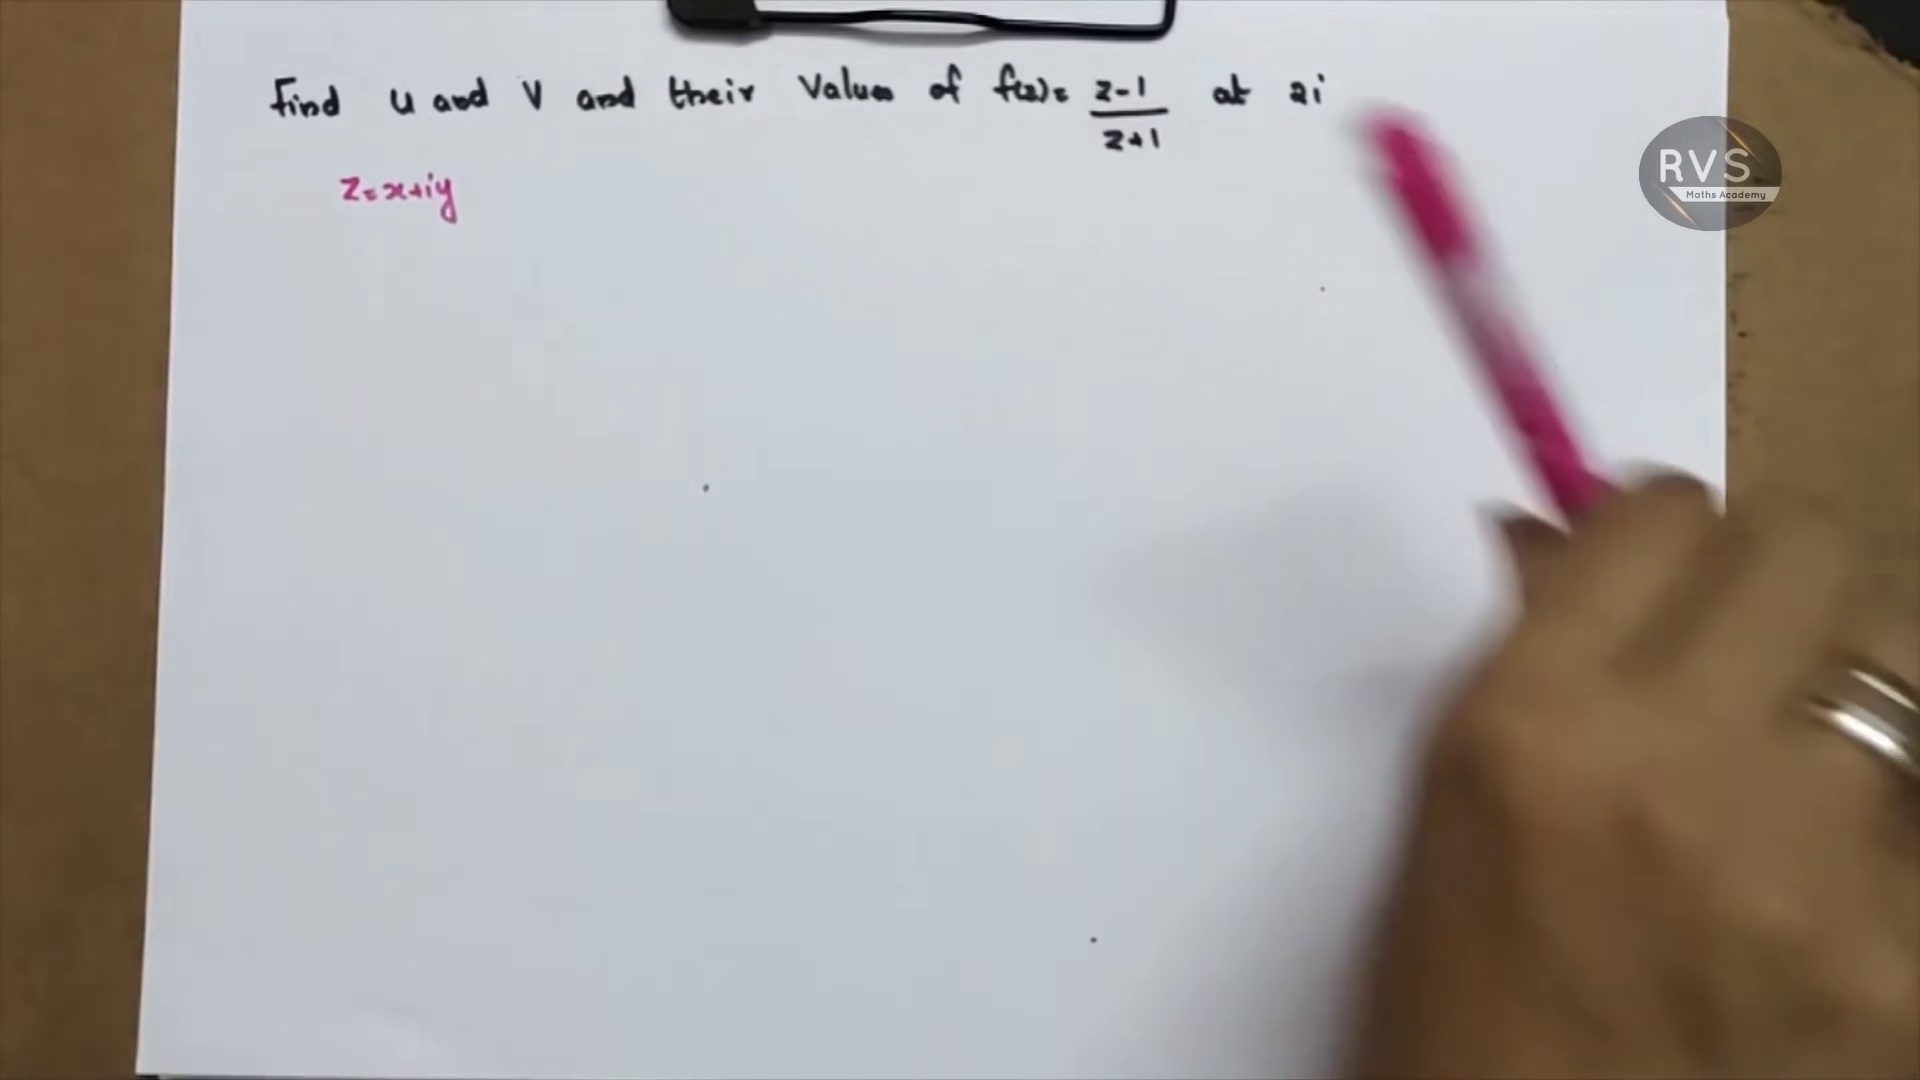 Find u and v and their values of f(z) = z-1 / z+1 at 2i
z = x+iy
RVS
Maths Academy